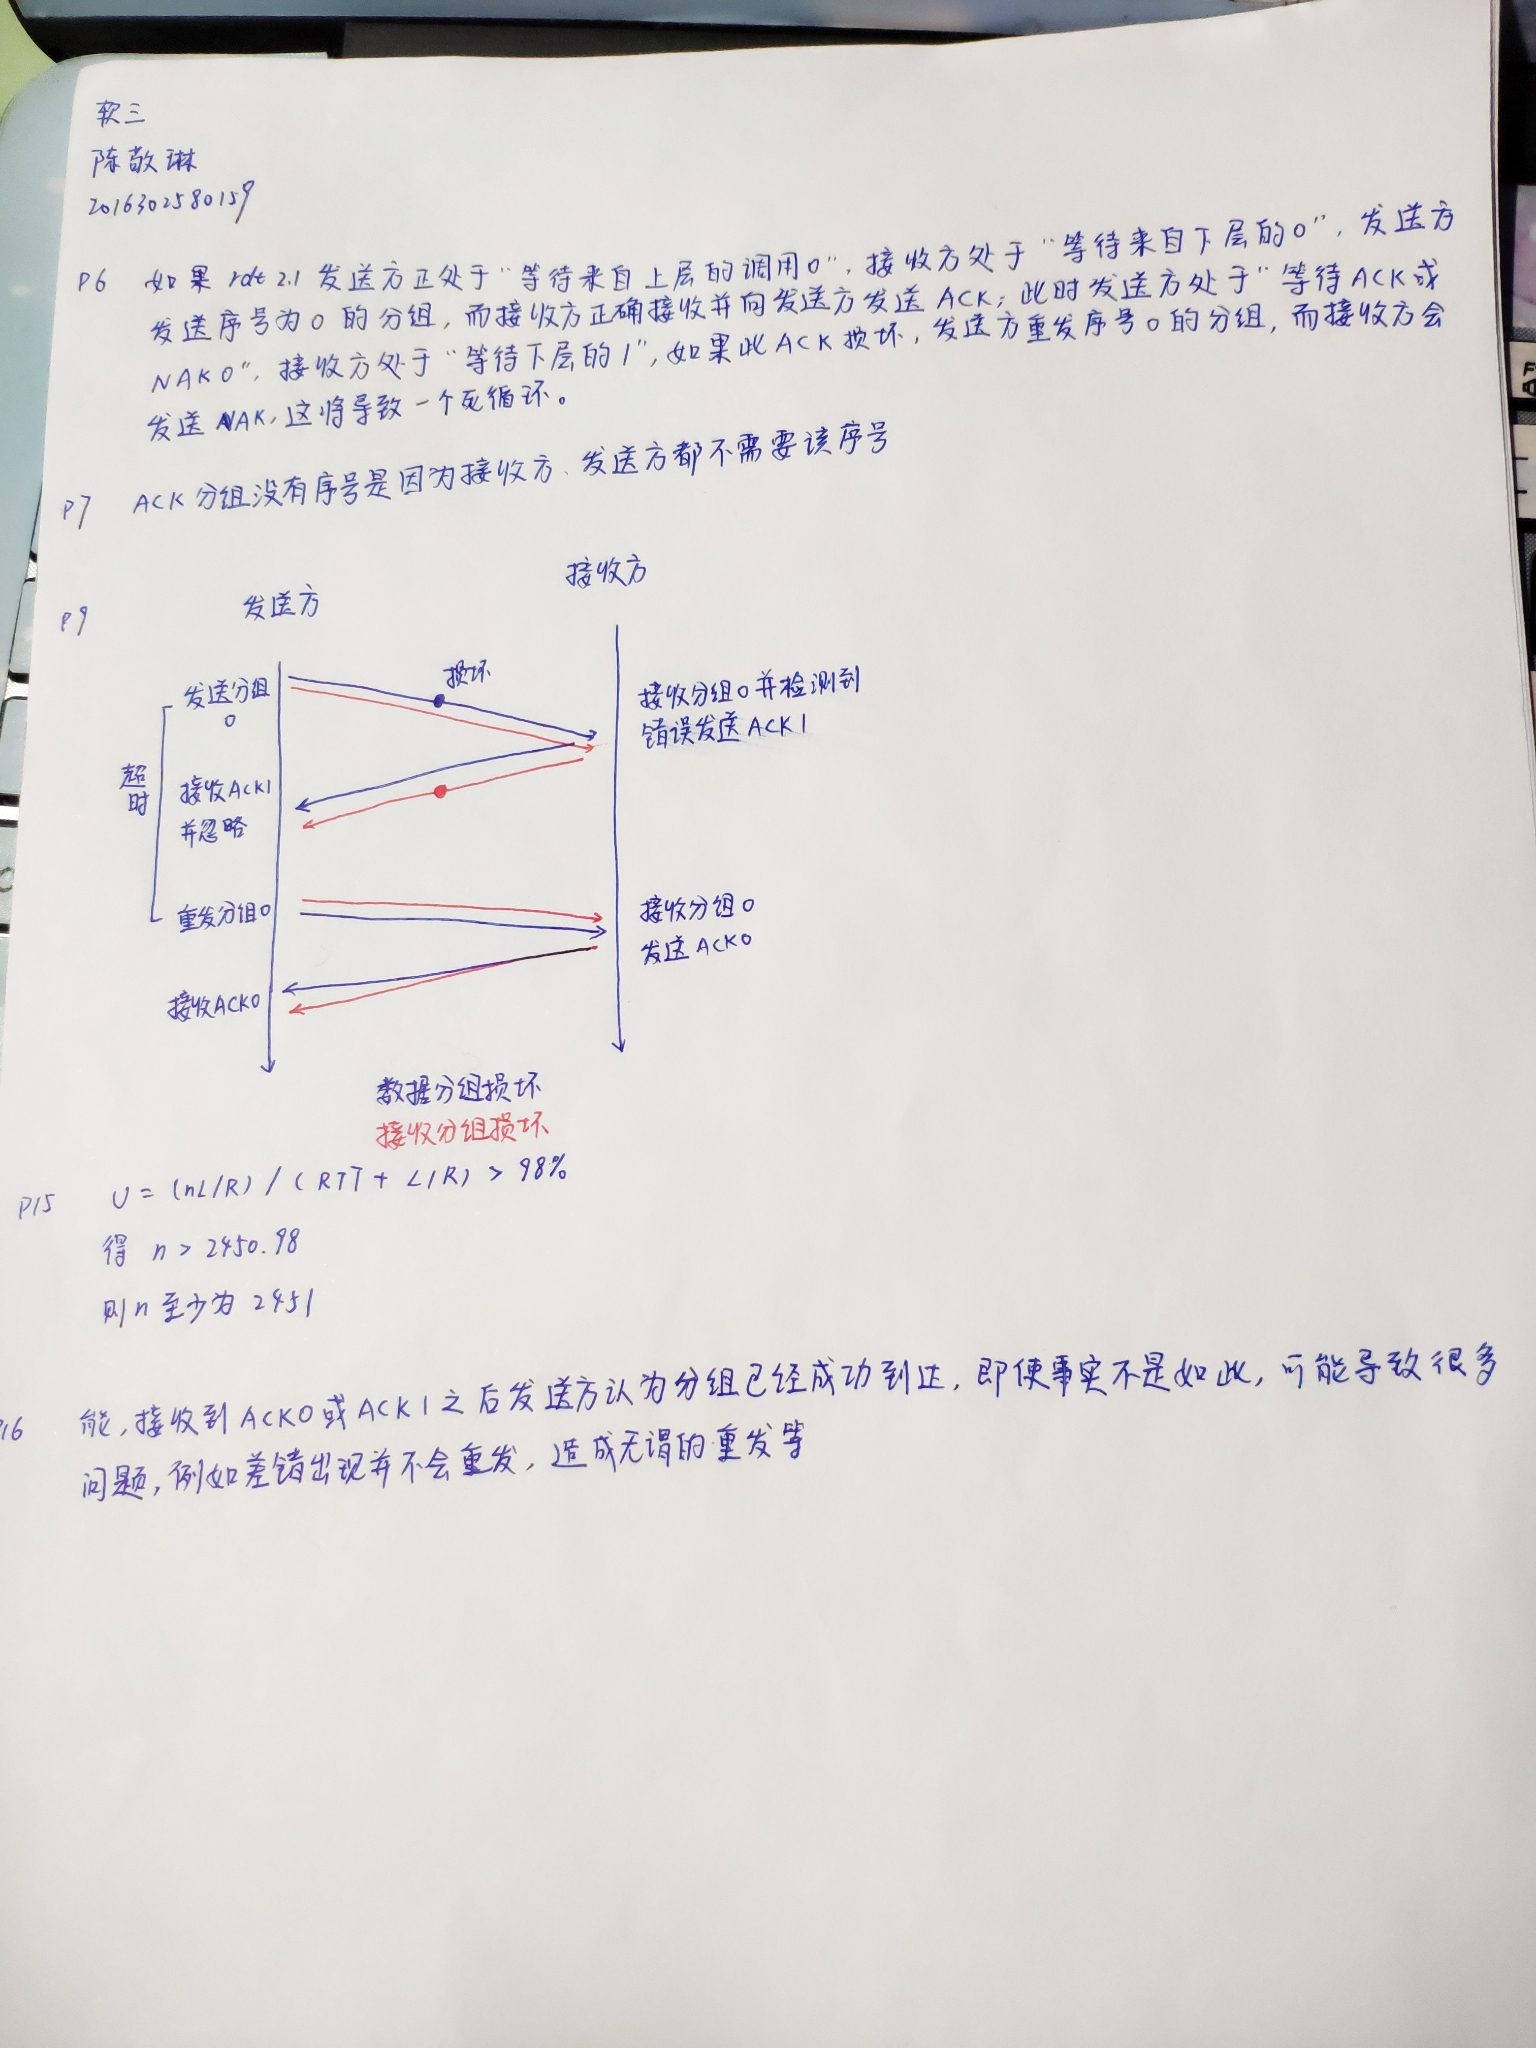 软三
陈敬琳
2016302580159
P6 如果 rdt 2.1 发送方正处于"等待来自上层的调用0", 接收方处于"等待来自下层的0", 发送方
发送序号为0的分组, 而接收方正确接收并向发送方发送 ACK; 此时发送方处于"等待ACK或
NAK0", 接收方处于"等待下层的1", 如果此ACK损坏, 发送方重发序号0的分组, 而接收方会
发送NAK, 这将导致一个死循环。
P7 ACK分组没有序号是因为接收方、发送方都不需要该序号
P9 发送方 接收方
损坏
发送分组
0
接收分组0并检测到
错误发送ACK1
超时
接收ACK1
并忽略
重发分组0
接收分组0
发送ACK0
接收ACK0
数据分组损坏
接收分组损坏
P15 U = (nL/R) / (RTT + L/R) > 98%
得 n > 2450.98
则n至少为 2451
P16 能, 接收到ACK0或ACK1之后发送方认为分组已经成功到达, 即使事实不是如此, 可能导致很多
问题, 例如差错出现并不会重发, 造成无谓的重发等